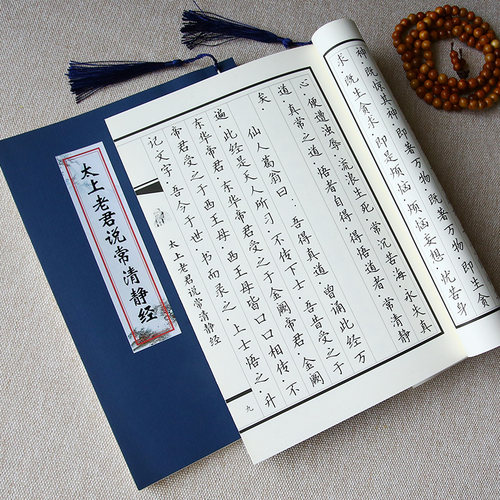 太上老君说常清静经
神·既惊其神·即著万物·既著万物·即生贪
求·既生贪求·即是烦恼·烦恼妄想·忧苦身
心·便遭浊辱·流浪生死·常沉苦海·永失真
道·真常之道·悟者自得·得悟道者·常清静
矣·
仙人葛翁曰·吾得真道·曾诵此经万
遍·此经是天人所习·不传下士·吾昔受之于
东华帝君·东华帝君受之于金阙帝君·金阙
帝君受之于西王母·西王母皆口口相传·不
记文字·吾今于世·书而录之·上士悟之·升
太上老君说常清静经
九